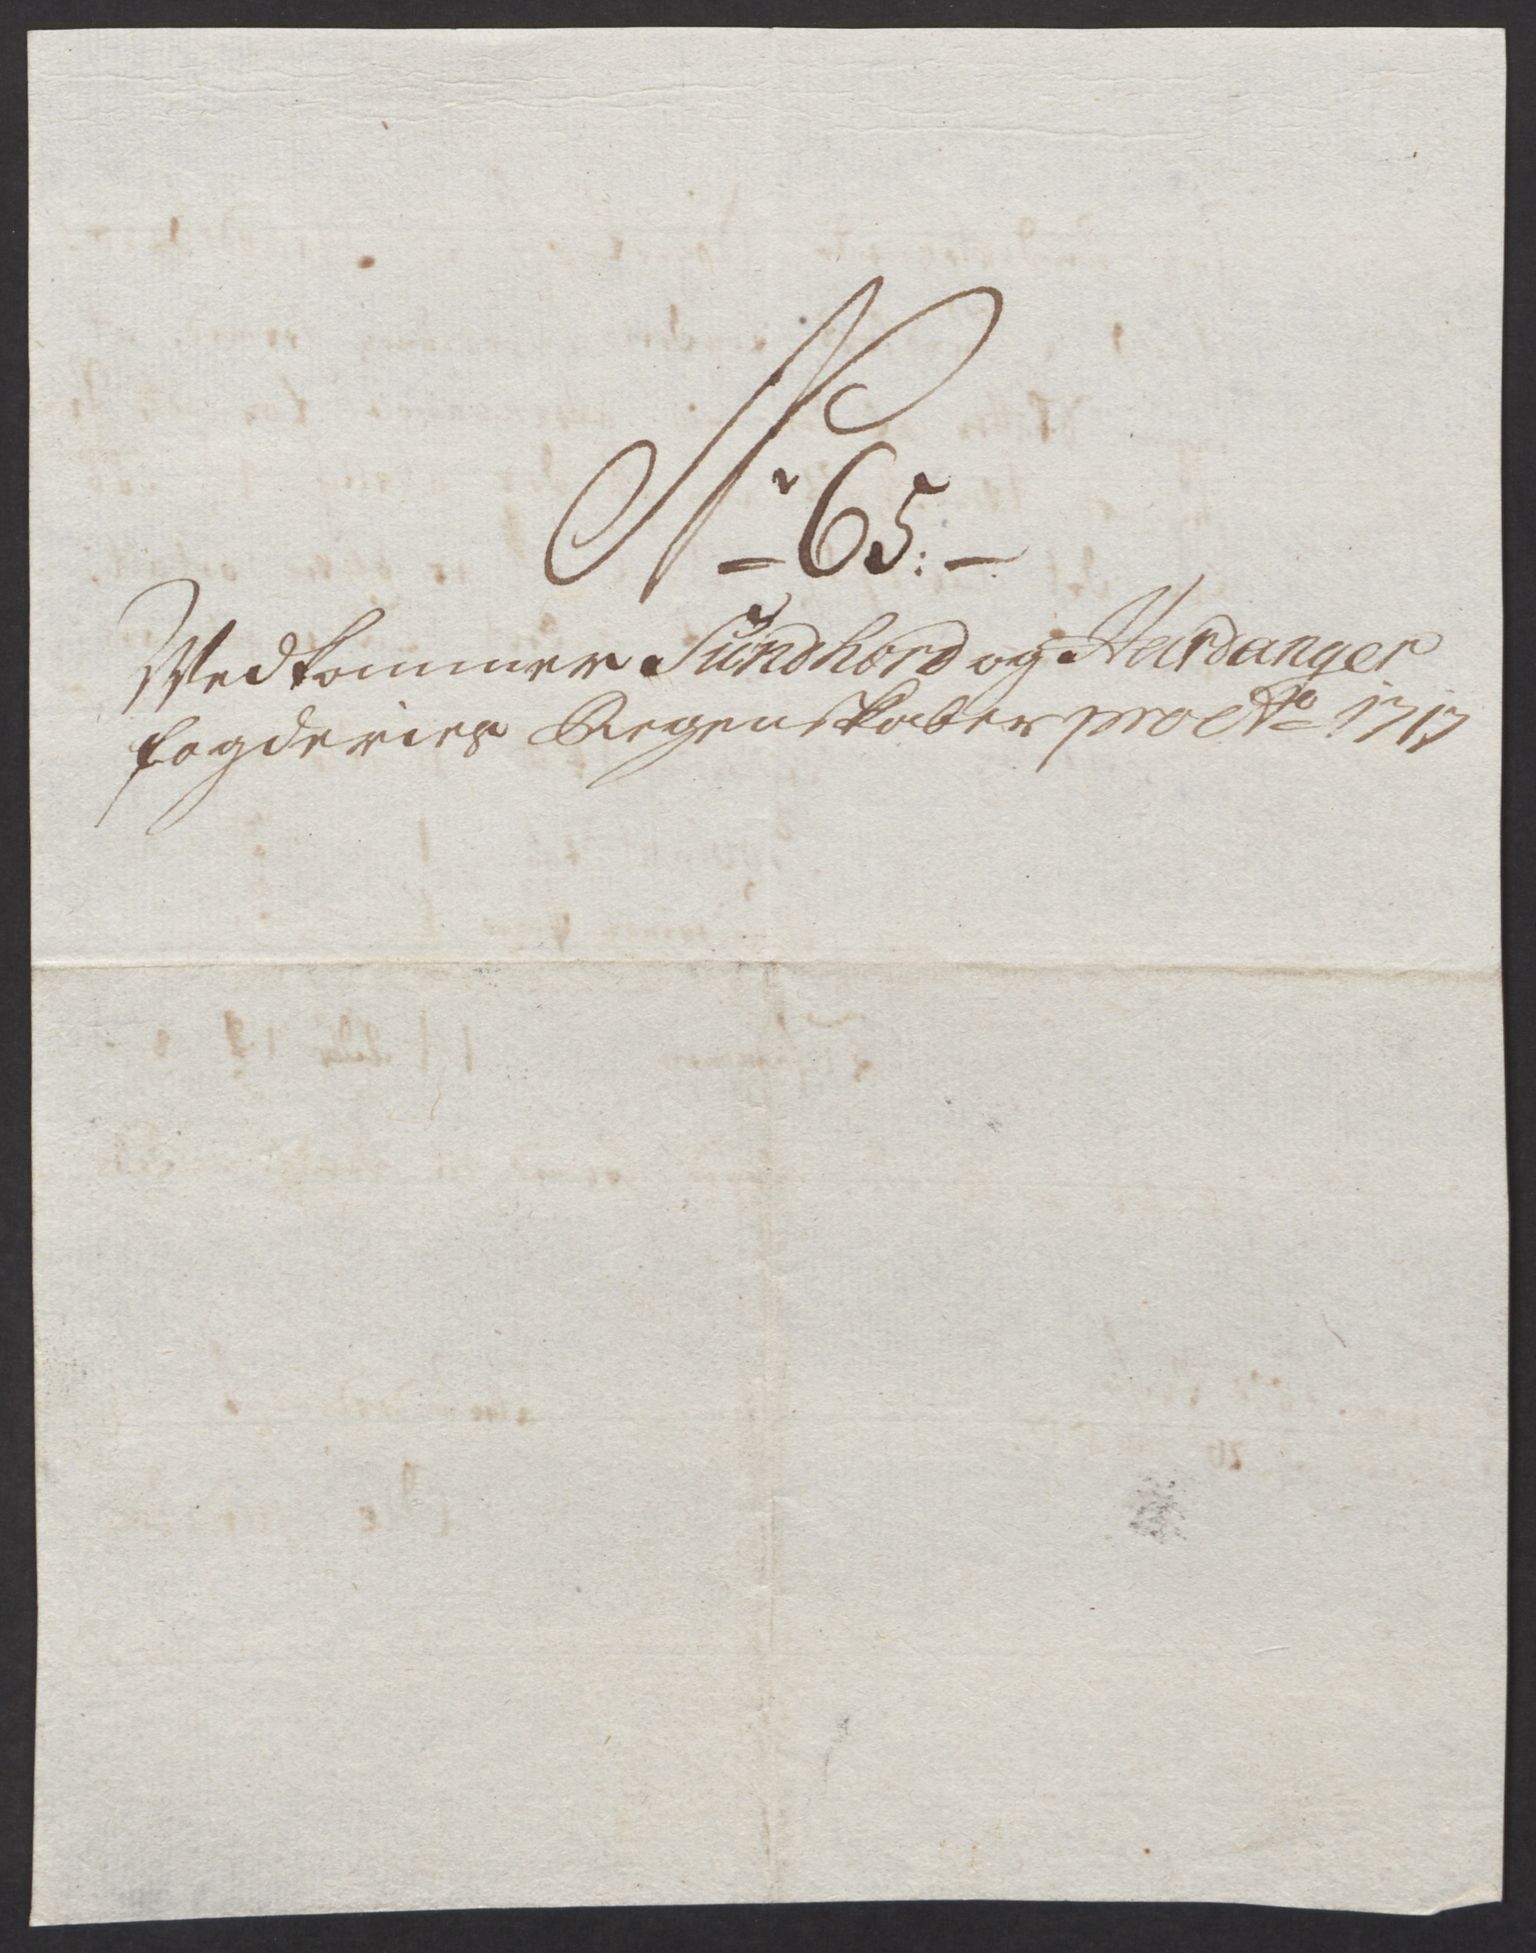 Nr 65.
Wedkommer Sundhord og Hardanger
fogderies Regenskaber pro Ao 1717